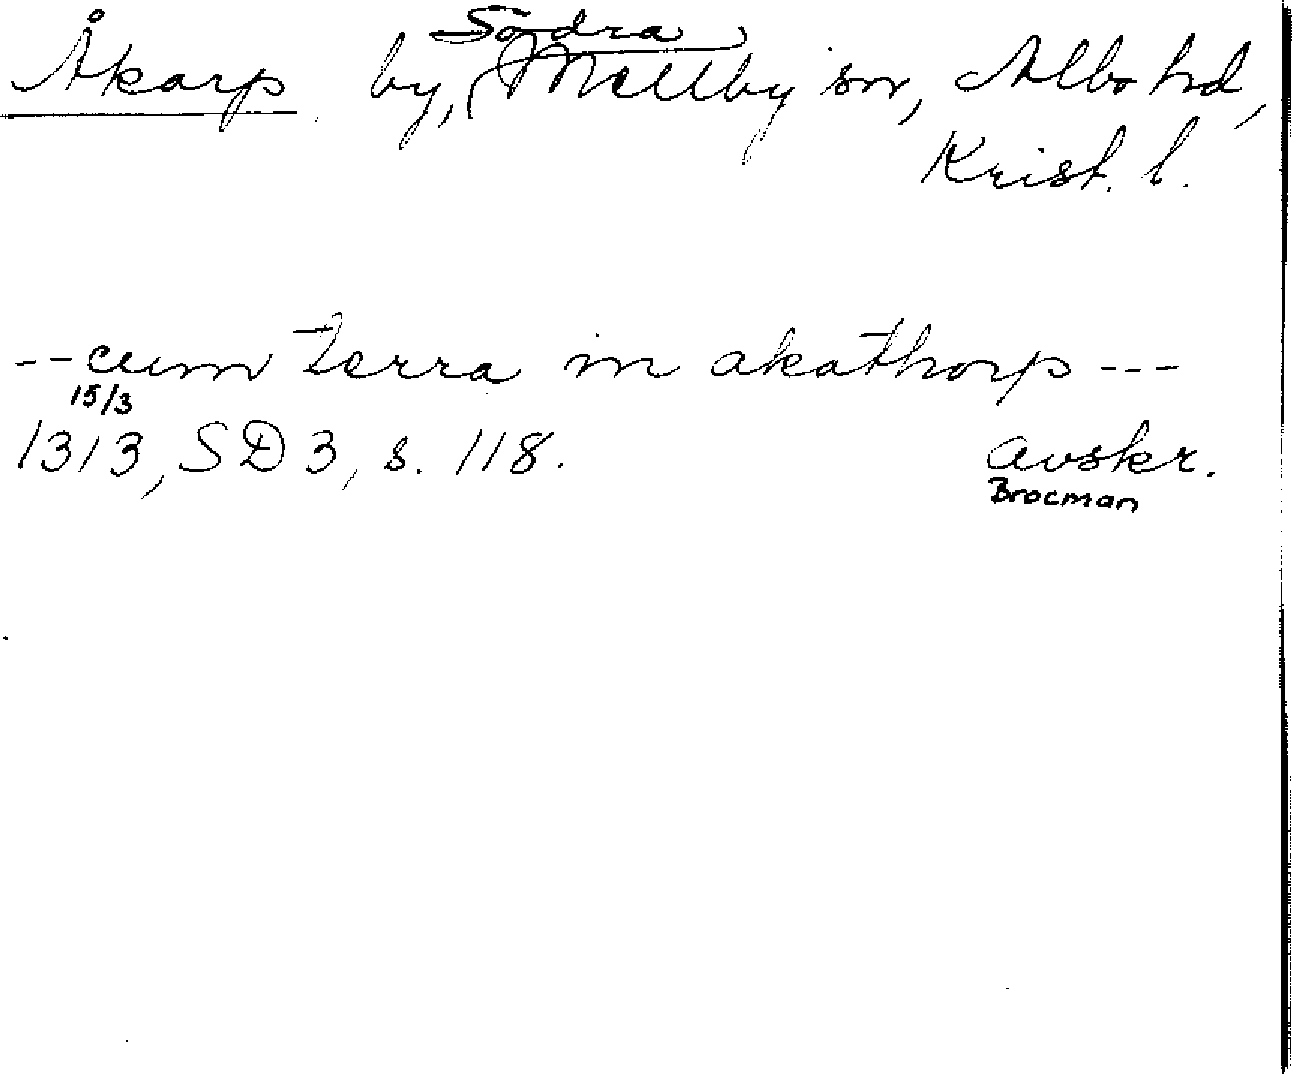 Åkarp by, Södra Mellby sn, Albo hd,
Krist. l.
-- cum terra in akathorp ---
15/3
1313, SD 3, s. 118. avskr.
Brocman